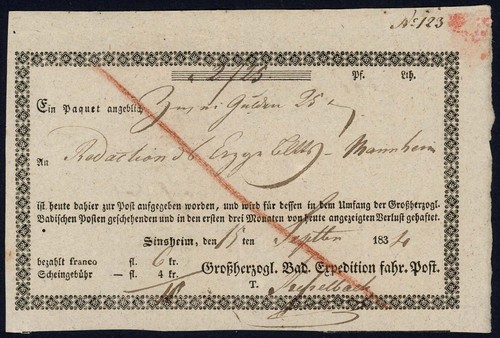 No. 123
2/25
Pf. Lth.
Ein Paquet angeblich Gulden 25
An Redaction d Mannheim
ist heute dahier zur Post aufgegeben worden, und wird für dessen in dem Umfang der Großherzogl.
Badischen Posten geschehenden und in den ersten drei Monaten von heute angezeigten Verlust gehaftet.
Sinsheim, den 15 ten Septbr 1834
bezahlt franco fl. 6 kr.
Scheingebühr — fl. 4 kr.
Großherzogl. Bad. Expedition fahr. Post.
T.